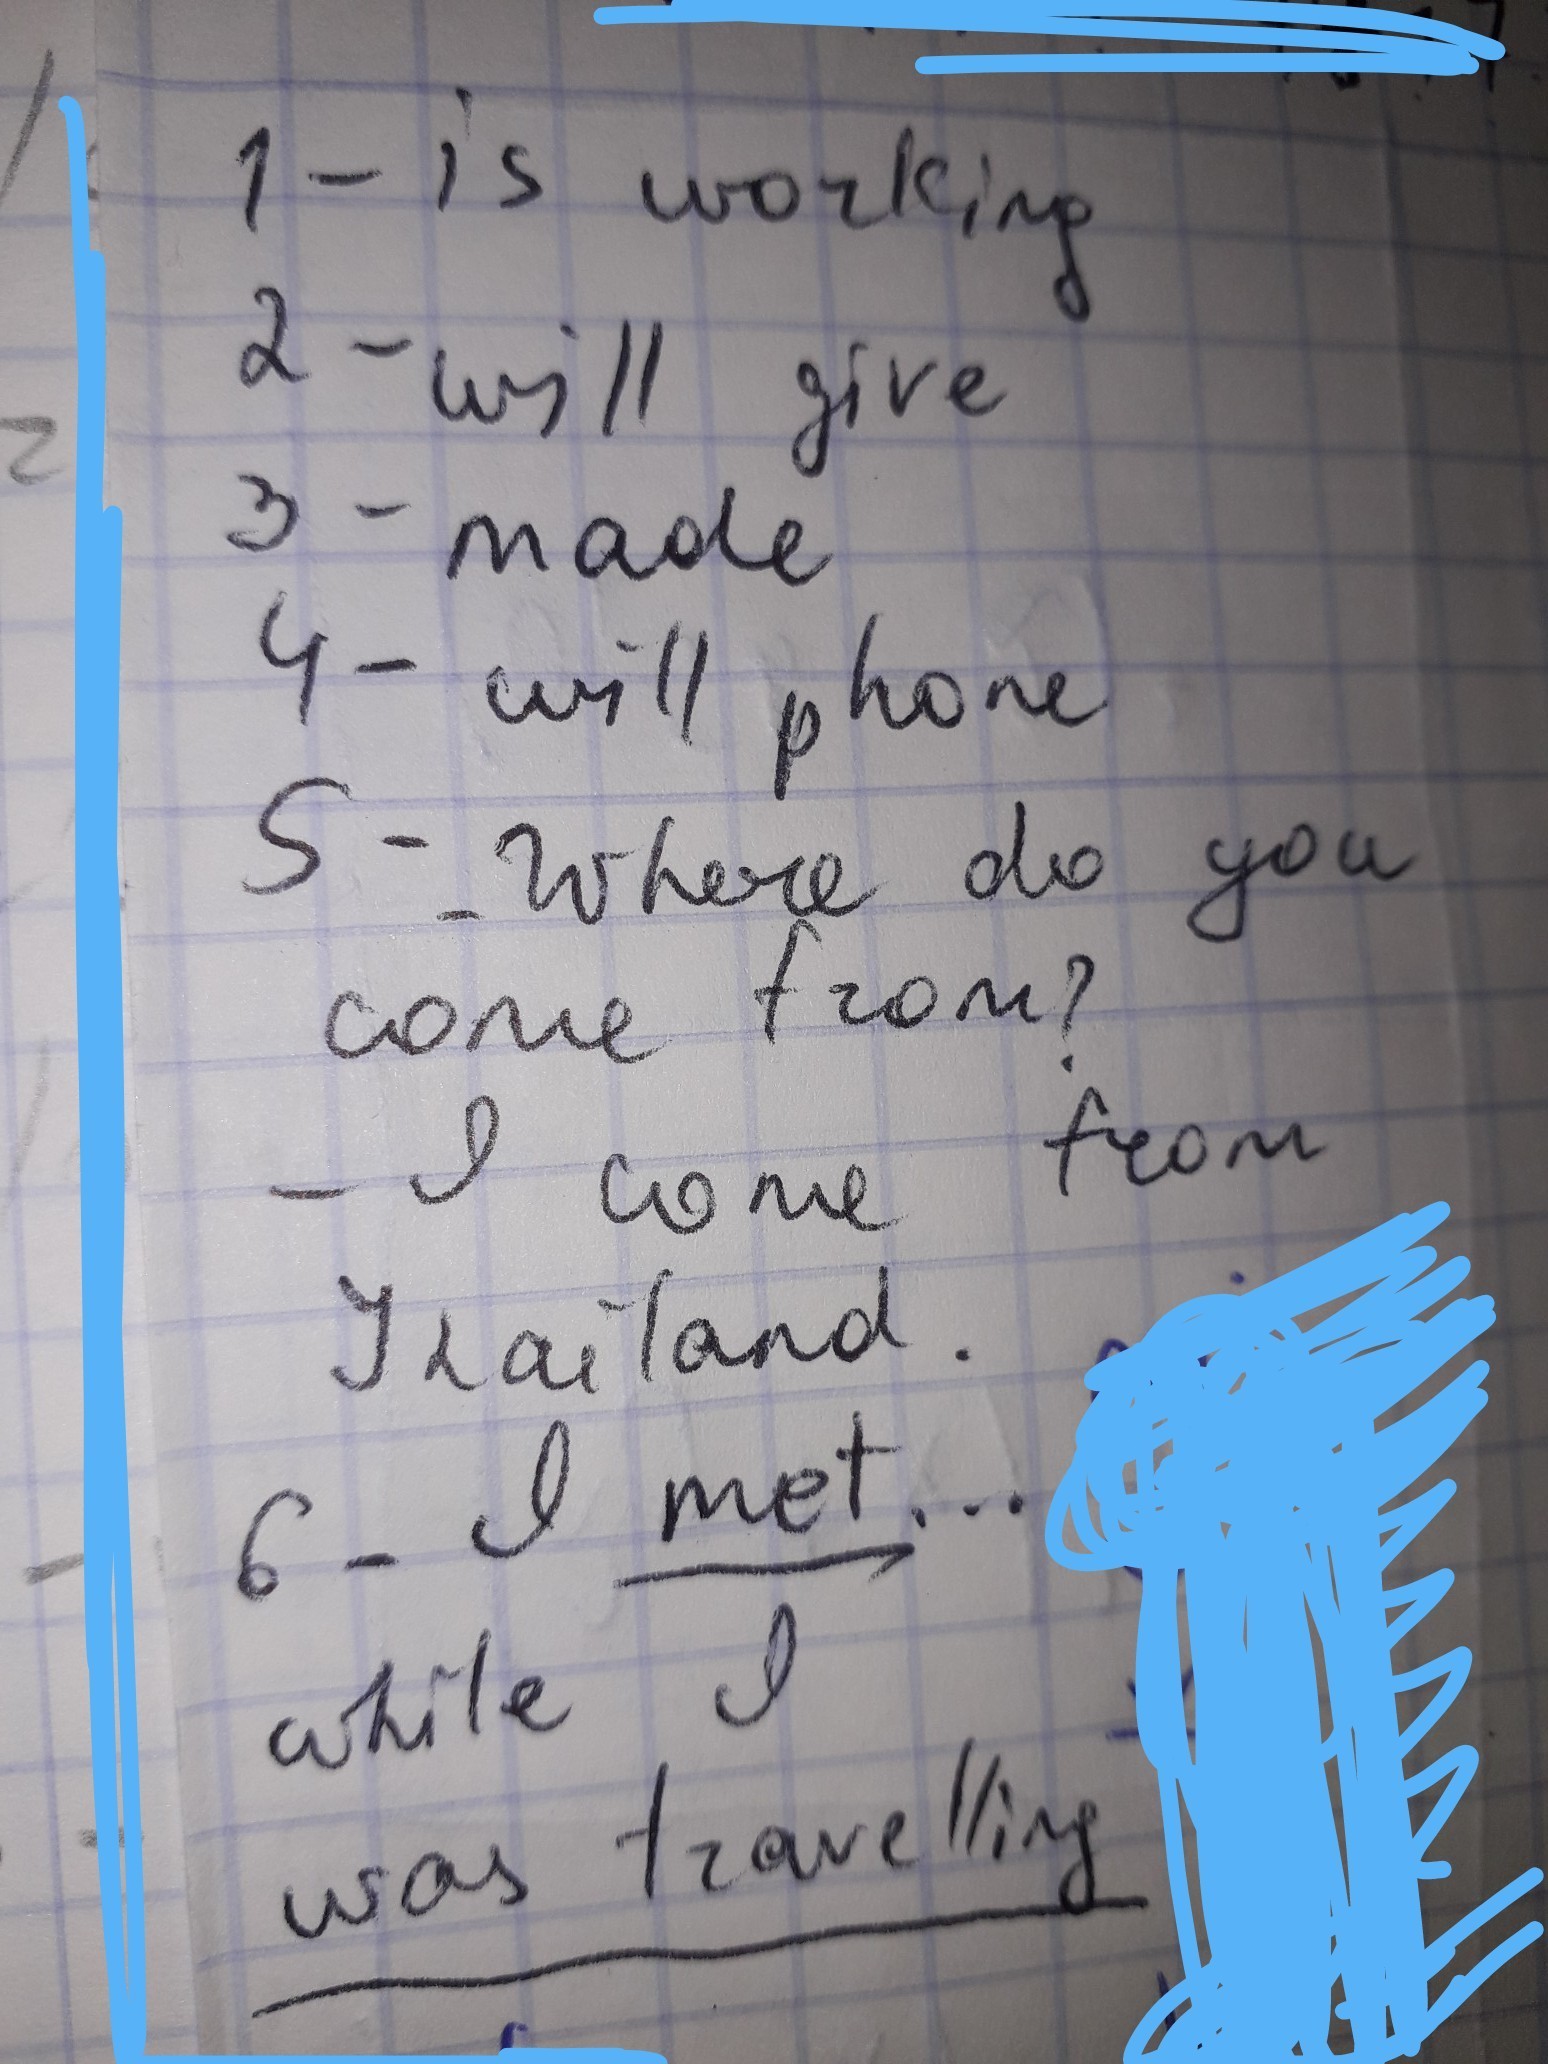 1 - is working
2 - will give
3 - made
4 - will phone
5 - - Where do you
come from?
- I come from
Thailand.
6 - I met...
while I
was travelling